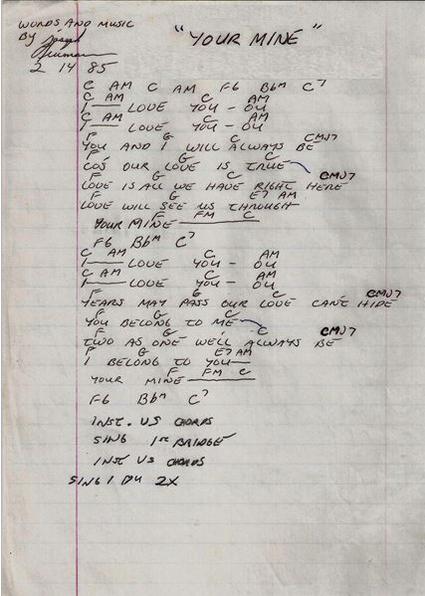 WORDS AND MUSIC
"YOUR MINE"
BY Joseph
2 14 85
C AM C AM F6 Bbm C7
C AM C AM
I — LOVE YOU - OU
C AM C AM
I — LOVE YOU - OU
F G C CMJ7
YOU AND I WILL ALWAYS BE
F G C
COS OUR LOVE IS TRUE
F G C CMJ7
LOVE IS ALL WE HAVE RIGHT HERE
F G E7 AM
LOVE WILL SEE US THROUGH
F FM C
YOUR MINE
F6 Bbm C7
C AM C AM
I — LOVE YOU - OU
C AM C AM
I — LOVE YOU - OU
F G C CMJ7
YEARS MAY PASS OUR LOVE CAN'T HIDE
F G C
YOU BELONG TO ME
F G C CMJ7
TWO AS ONE WE'LL ALWAYS BE
F G E7 AM
I BELONG TO YOU
F FM C
YOUR MINE
F6 Bbm C7
INST. US CHORDS
SING 1st BRIDGE
INST US CHORDS
SING I OU 2X